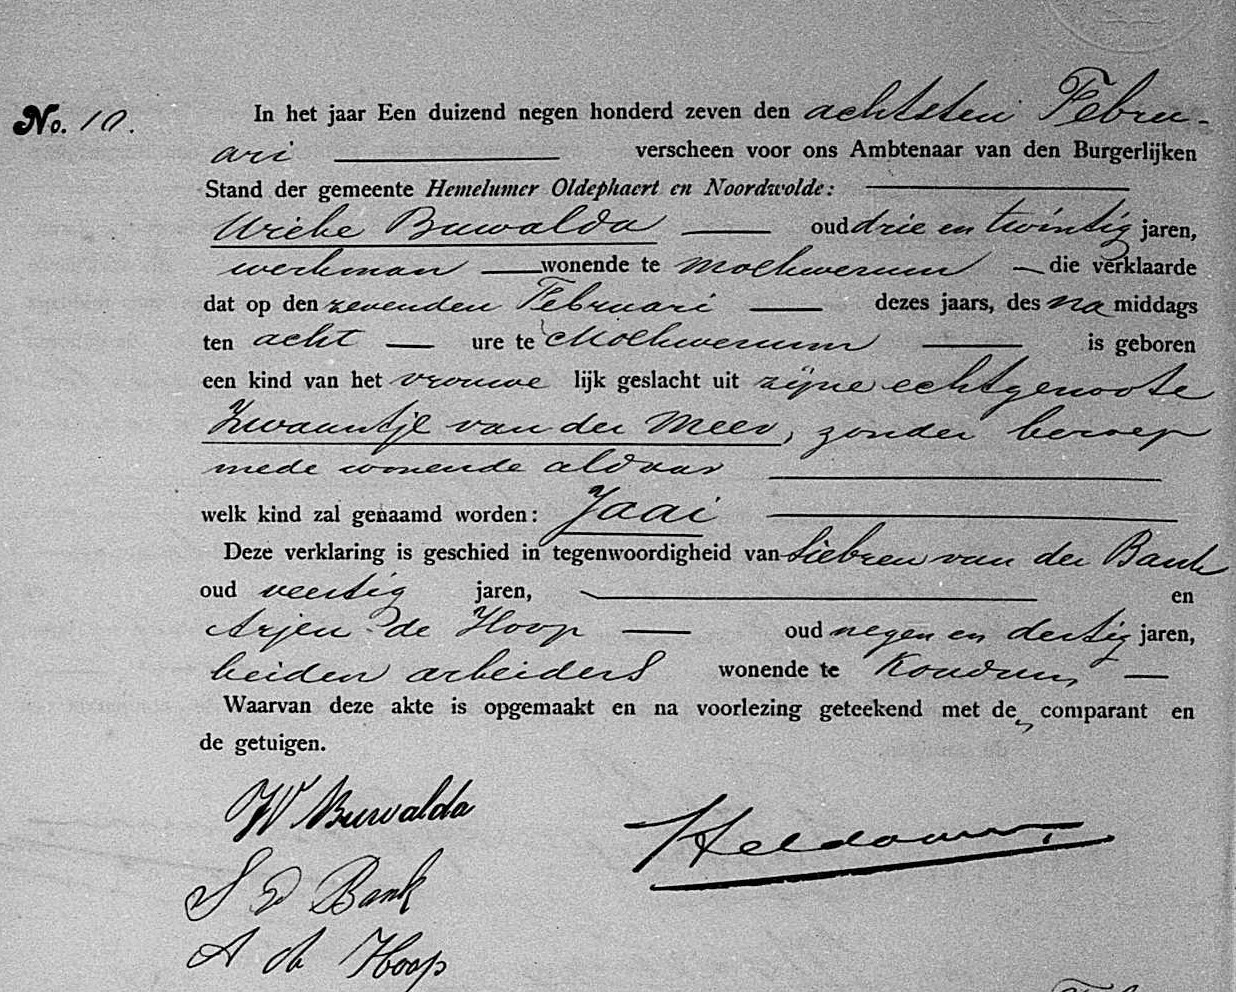 No. 10. In het jaar Een duizend negen honderd zeven den achtsten Febru-
ari verscheen voor ons Ambtenaar van den Burgerlijken
Stand der gemeente Hemelumer Oldephaert en Noordwolde:
Wiebe Buwalda oud drie en twintig jaren,
werkman wonende te Molkwerum die verklaarde
dat op den zevenden Februari dezes jaars, des na middags
ten acht ure te Molkwerum is geboren
een kind van het vrouwe lijk geslacht uit zijne echtgenoote
Zwaantje van der Meer, zonder beroep
mede wonende aldaar
welk kind zal genaamd worden: Jaai
Deze verklaring is geschied in tegenwoordigheid van Siebren van der Bank
oud veertig jaren, en
Arjen de Hoop oud negen en dertig jaren,
beiden arbeiders wonende te Koudum,
Waarvan deze akte is opgemaakt en na voorlezing geteekend met den comparant en
de getuigen.
W Buwalda
S v d Bank
A de Hoop